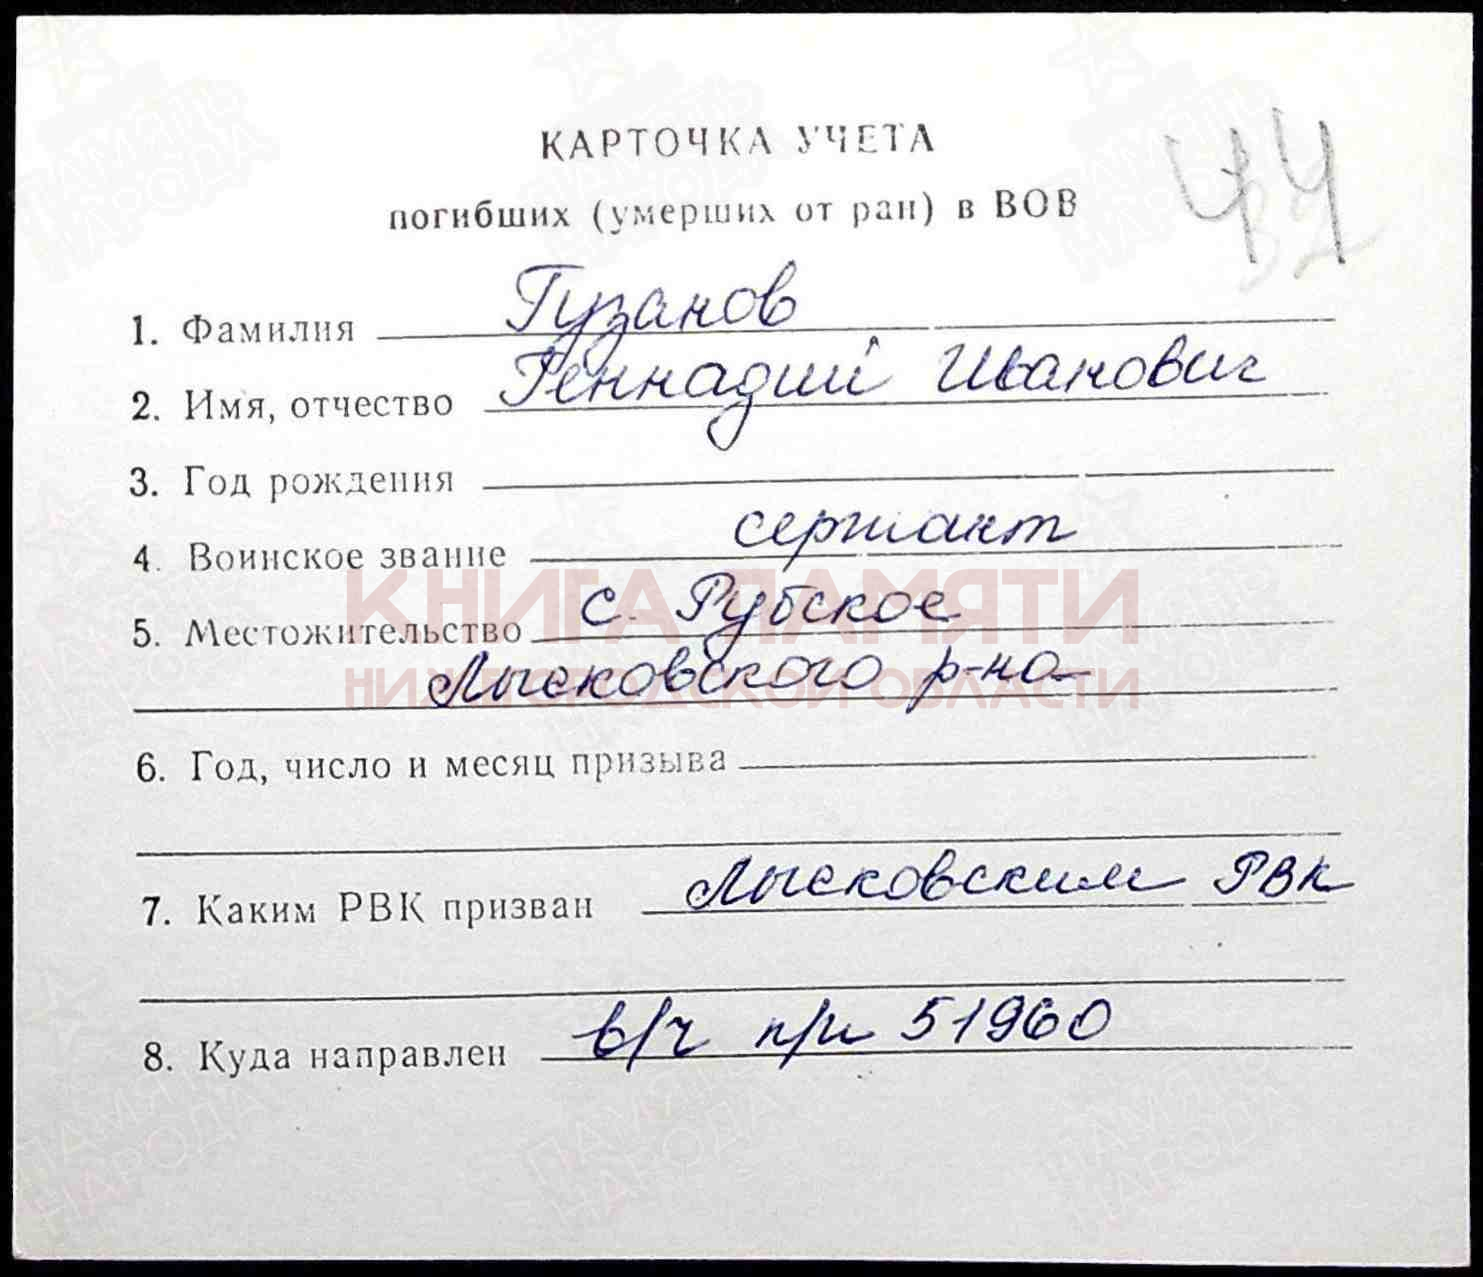 КАРТОЧКА УЧЕТА
погибших (умерших от ран) в ВОВ
44
1. Фамилия Гузанов
2. Имя, отчество Геннадий Иванович
3. Год рождения
4. Воинское звание сержант
5. Местожительство с. Рубское
Лысковского р-на
6. Год, число и месяц призыва
7. Каким РВК призван Лысковским РВК
8. Куда направлен в/ч п/п 51960
КНИГА ПАМЯТИ
НИЖЕГОРОДСКОЙ ОБЛАСТИ
ПАМЯТЬ
НАРОДА